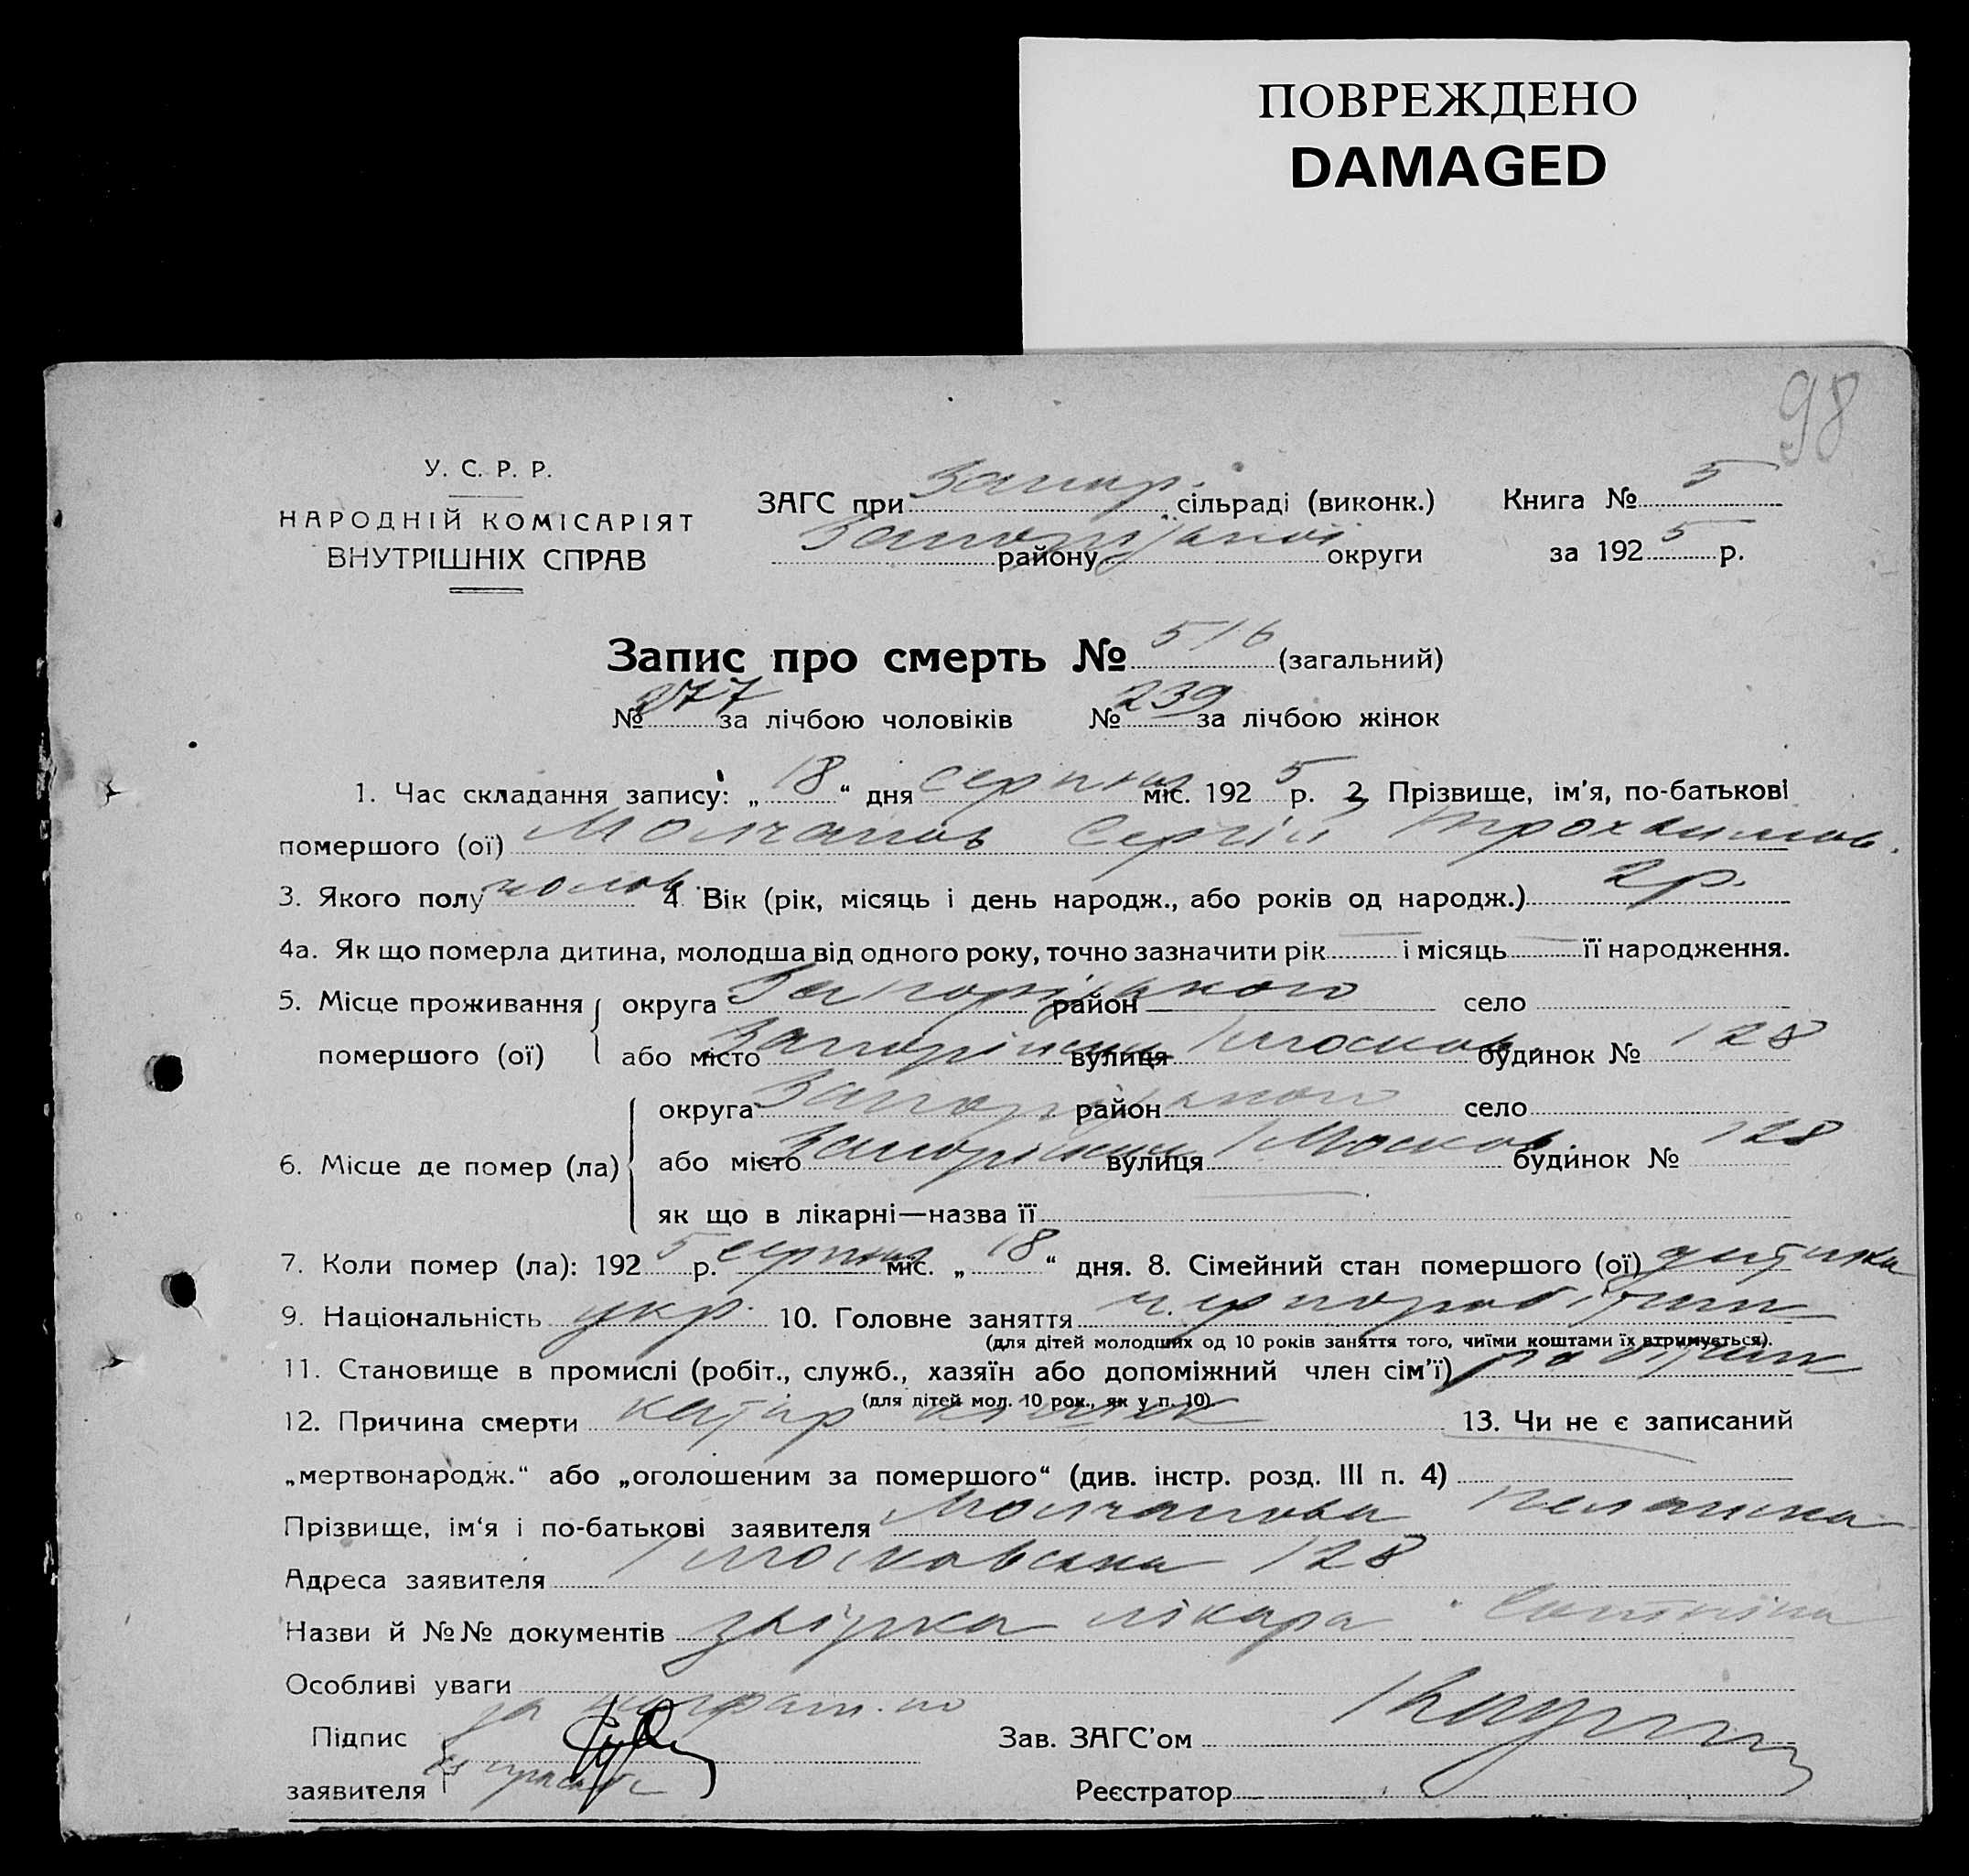 ПОВРЕЖДЕНО
DAMAGED
98
У. С. Р. Р.
НАРОДНІЙ КОМІСАРІЯТ
ВНУТРІШНІХ СПРАВ
ЗАГС при Запор. сільраді (виконк.) Книга № 5
району Запорізької округи за 1925 р.
Запис про смерть № 516 (загальний)
№ 277 за лічбою чоловіків № 239 за лічбою жінок
1. Час складання запису: „18“ дня серпня міс. 1925 р. 2. Прізвище, ім'я, по-батькові
помершого (ої) Молчанов Сергій Трохимов.
3. Якого полу чолов. 4. Вік (рік, місяць і день народж., або років од народж.) 2 р.
4а. Як що померла дитина, молодша від одного року, точно зазначити рік — і місяць — її народження.
5. Місце проживання округа Запорізького район село
помершого (ої) або місто Запоріжжя вулиця Москов. будинок № 128
округа Запорізького район село
6. Місце де помер (ла) або місто Запоріжжя вулиця Москов. будинок № 128
як що в лікарні—назва її
7. Коли помер (ла): 1925 р. серпня міс. „18“ дня. 8. Сімейний стан помершого (ої) дитинка
9. Національність укр. 10. Головне заняття чорноробітник
(для дітей молодших од 10 років заняття того, чиїми коштами їх втримується).
11. Становище в промислі (робіт., служб., хазяїн або допоміжний член сім'ї) робітник
(для дітей мол. 10 рок., як у п. 10).
12. Причина смерти катар кишок 13. Чи не є записаний
„мертвонародж.“ або „оголошеним за помершого“ (див. інстр. розд. III п. 4)
Прізвище, ім'я і по-батькові заявителя Молчанова Пелагика
Адреса заявителя Московська 128
Назви й №№ документів звістка лікаря
Особливі уваги
Підпис за неграм. по
заявителя її просьбі
Зав. ЗАГС'ом
Реєстратор